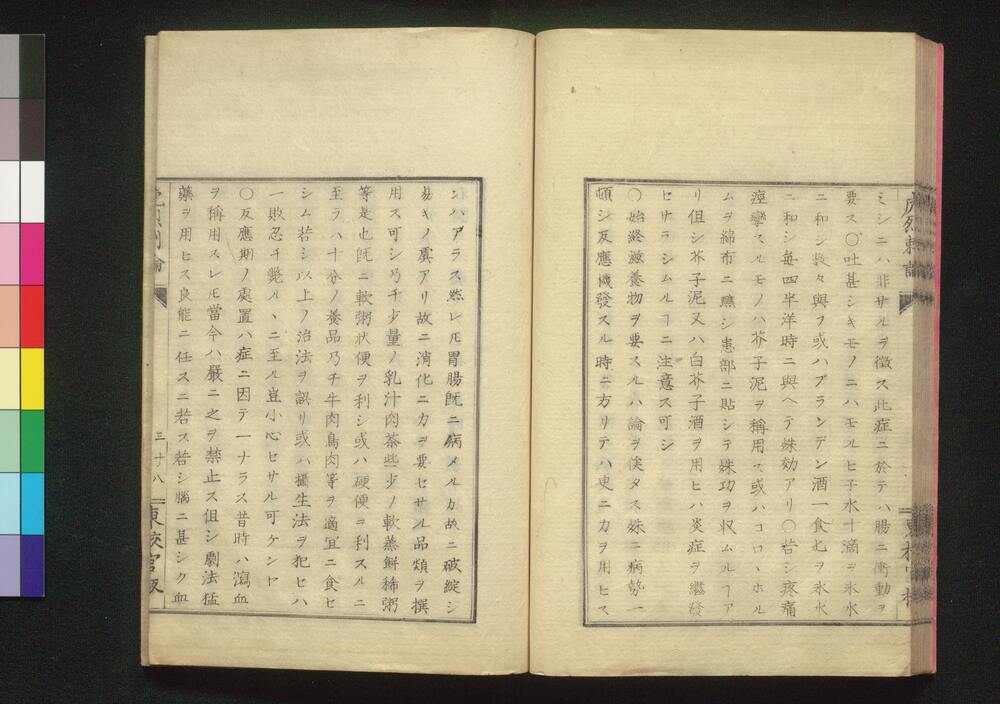 ミシニハ非サルヲ徴ス此症ニ於テハ腸ニ衝動ヲ
要ス〇吐甚シキモノニハモルヒ子水十滴ヲ氷水
ニ和シ数々與フ或ハブランデン酒一食匕ヲ氷水
ニ和シ毎四半洋時ニ與ヘテ殊効アリ〇若シ疼痛
痙攣スルモノハ芥子泥ヲ稱用ス或ハコロヽホル
ムヲ綿布ニ醮シ患部ニ貼シテ殊功ヲ収ムルヿア
リ但シ芥子泥又ハ白芥子酒ヲ用ヒハ炎症ヲ繼發
セサラシムルヿニ注意ス可シ
〇始終滋養物ヲ要スルハ論ヲ俟タス殊ニ病勢一
頓シ反應機發スル時ニ方リテハ更ニカヲ用ヒス
ンハアラス然レ𪜈胃腸既ニ病メルカ故ニ破綻シ
易キノ虞アリ故ニ消化ニカヲ要セサル品類ヲ撰
用ス可シ乃チ少量ノ乳汁肉茶些少ノ軟蒸餅稀粥
等是也既ニ軟粥状便ヲ利シ或ハ硬便ヲ利スルニ
至ラハ十分ノ養品乃チ牛肉鳥肉等ヲ適宜ニ食セ
シム若シ以上ノ治法ヲ誤リ或ハ攝生法ヲ犯セハ
一敗忽チ斃ルヽニ至ル豈小心セサル可ケンヤ
〇反應期ノ處置ハ症ニ因テ一ナラス昔時ハ瀉血
ヲ稱用スレ𪜈當今ハ嚴ニ之ヲ禁止ス但シ劇法猛
藥ヲ用ヒス良能ニ任スニ若ス若シ腦ニ甚シク血
三十八
東校官版